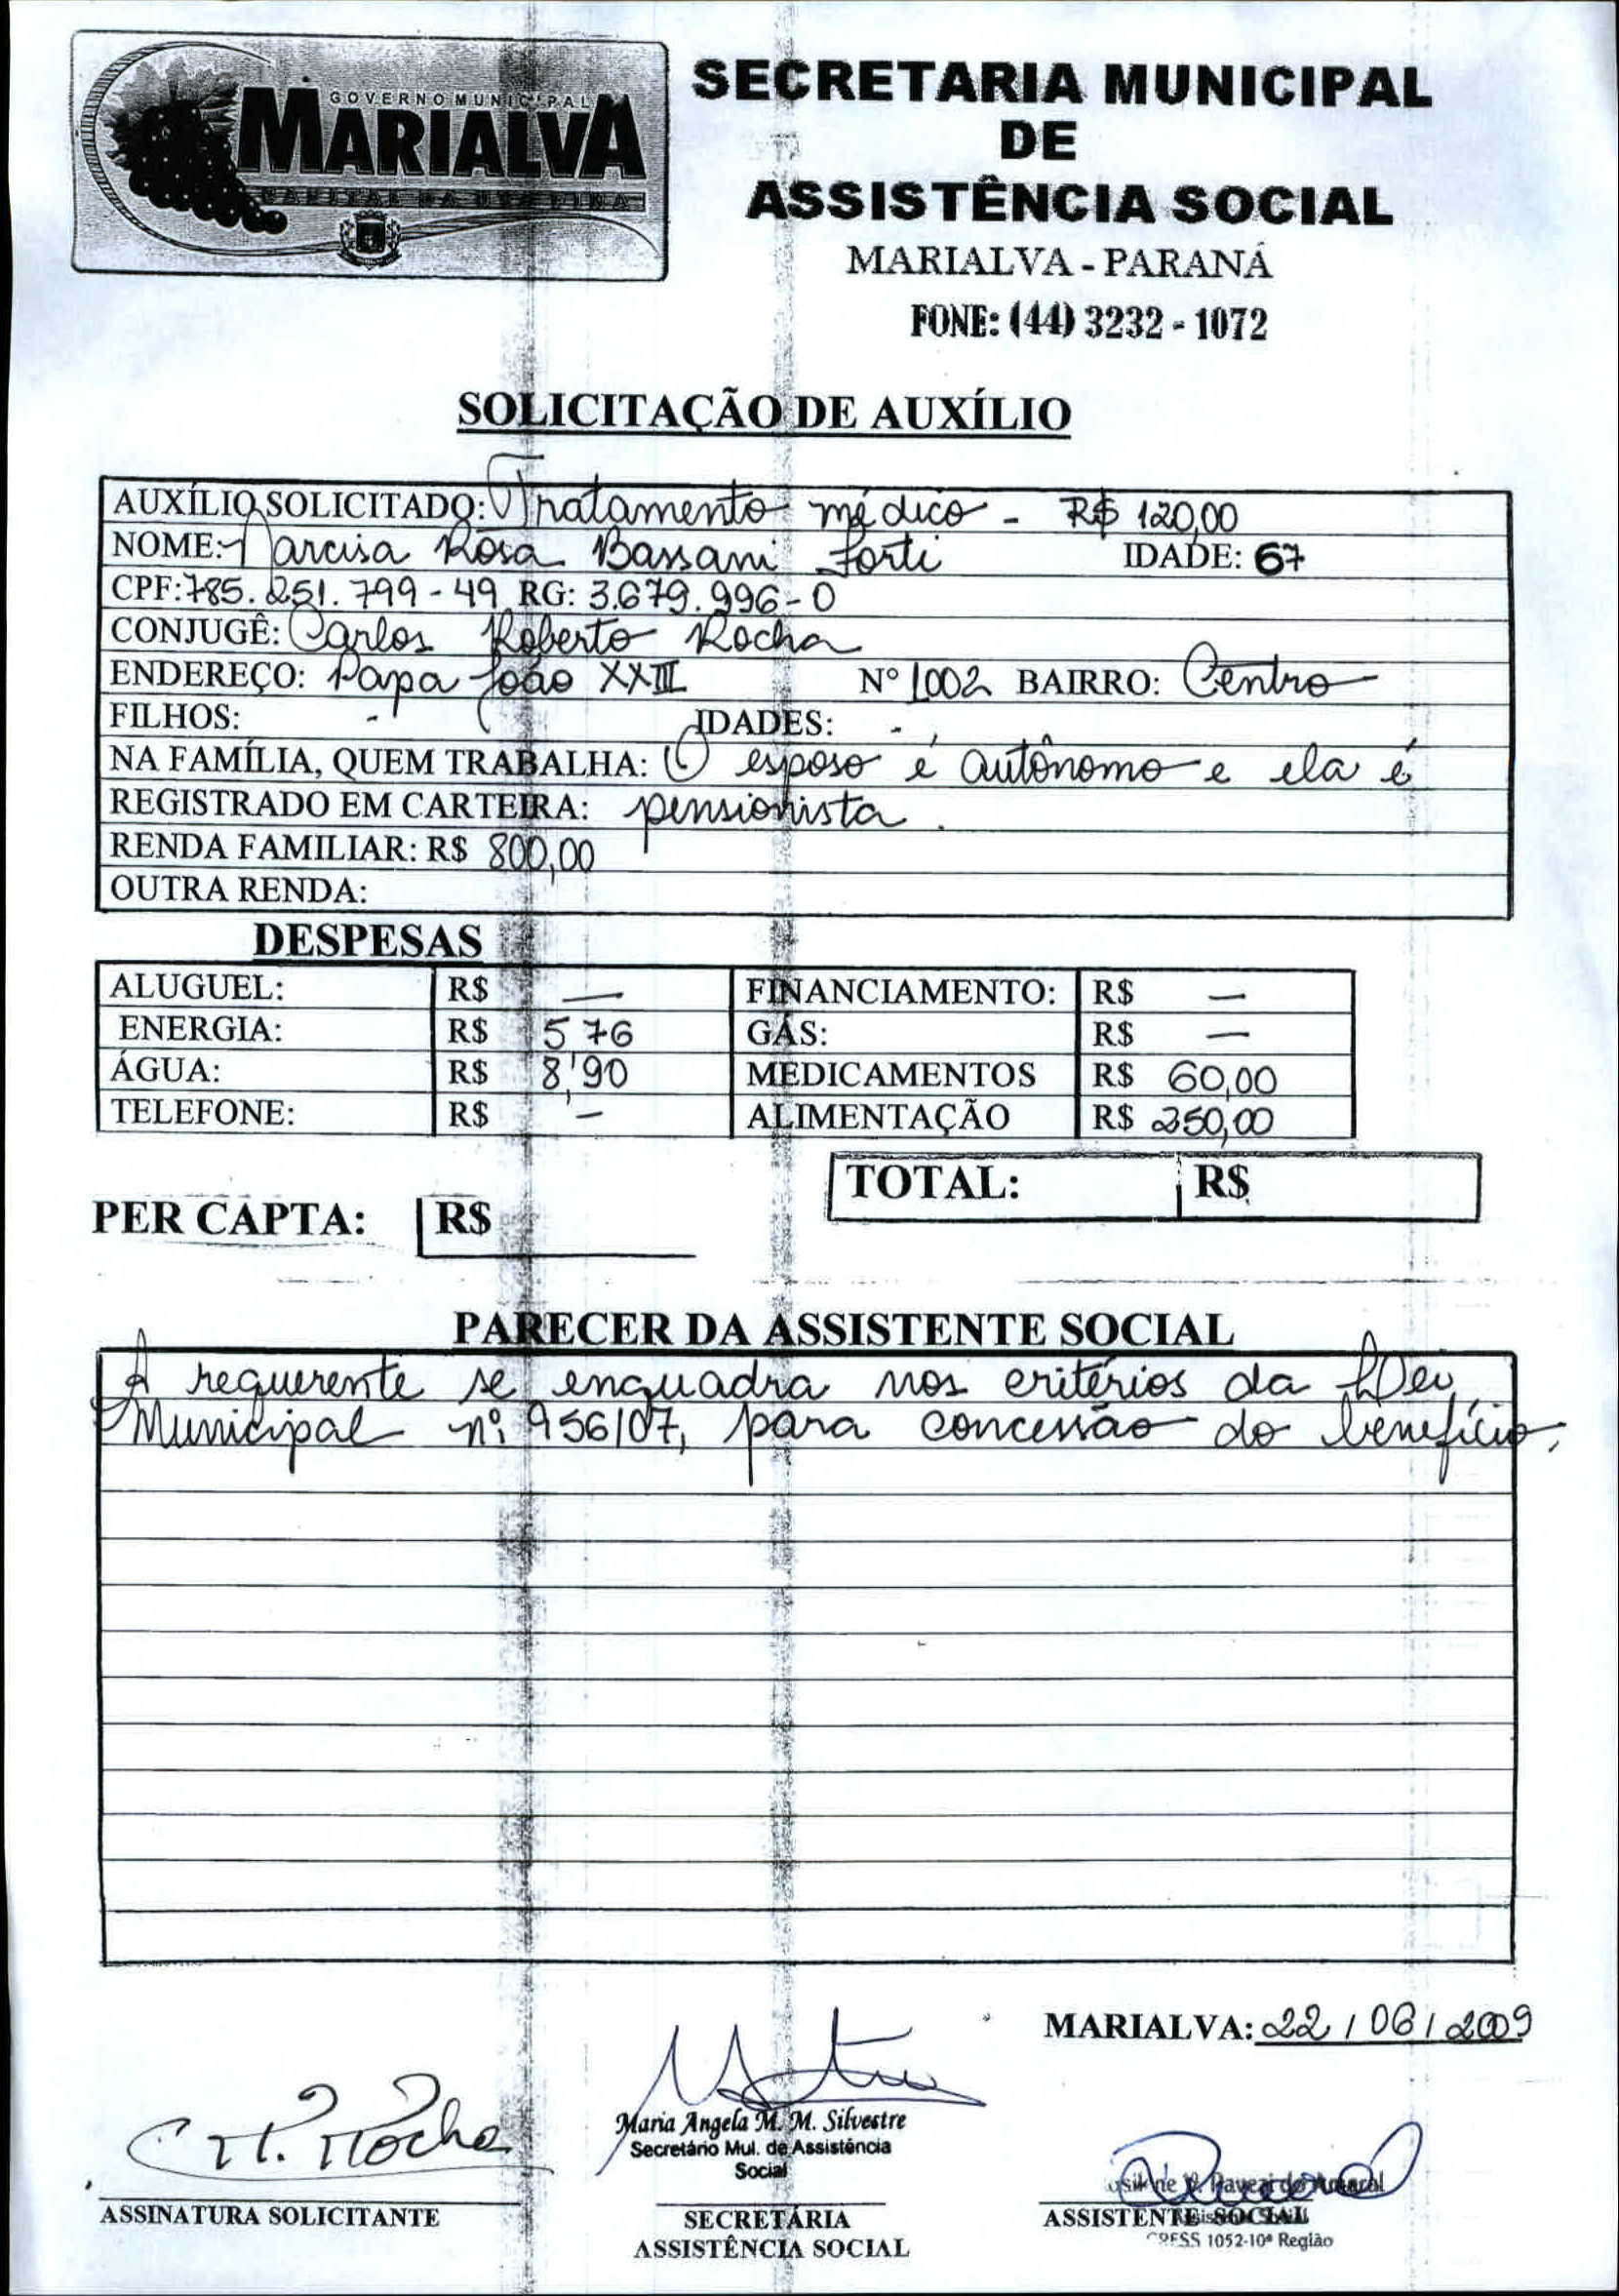 GOVERNO MUNICIPAL
MARIALVA
CAPITAL DA UVA FINA
SECRETARIA MUNICIPAL
DE
ASSISTÊNCIA SOCIAL
MARIALVA - PARANÁ
FONE: (44) 3232 - 1072
SOLICITAÇÃO DE AUXÍLIO
AUXÍLIO SOLICITADO: Tratamento médico - R$ 120,00
NOME: Narcisa Rosa Bassani Forti IDADE: 67
CPF: 785.251.799-49 RG: 3.679.996-0
CONJUGÊ: Carlos Roberto Rocha
ENDEREÇO: Papa João XXIII Nº 1002 BAIRRO: Centro
FILHOS: - IDADES: -
NA FAMÍLIA, QUEM TRABALHA: O esposo é autônomo e ela é
REGISTRADO EM CARTEIRA: pensionista.
RENDA FAMILIAR: R$ 800,00
OUTRA RENDA:
DESPESAS
ALUGUEL: R$ — FINANCIAMENTO: R$ —
ENERGIA: R$ 5,76 GÁS: R$ —
ÁGUA: R$ 8,90 MEDICAMENTOS R$ 60,00
TELEFONE: R$ - ALIMENTAÇÃO R$ 250,00
TOTAL: R$
PER CAPTA: R$
PARECER DA ASSISTENTE SOCIAL
A requerente se enquadra nos critérios da Lei
Municipal nº 956/07, para concessão do benefício.
MARIALVA: 22/06/2009
C R. Rocha
Maria Angela M. M. Silvestre
Secretário Mul. de Assistência
Social
ASSINATURA SOLICITANTE
SECRETÁRIA
ASSISTÊNCIA SOCIAL
do Amaral
ASSISTENTE SOCIAL
CRESS 1052-10ª Região